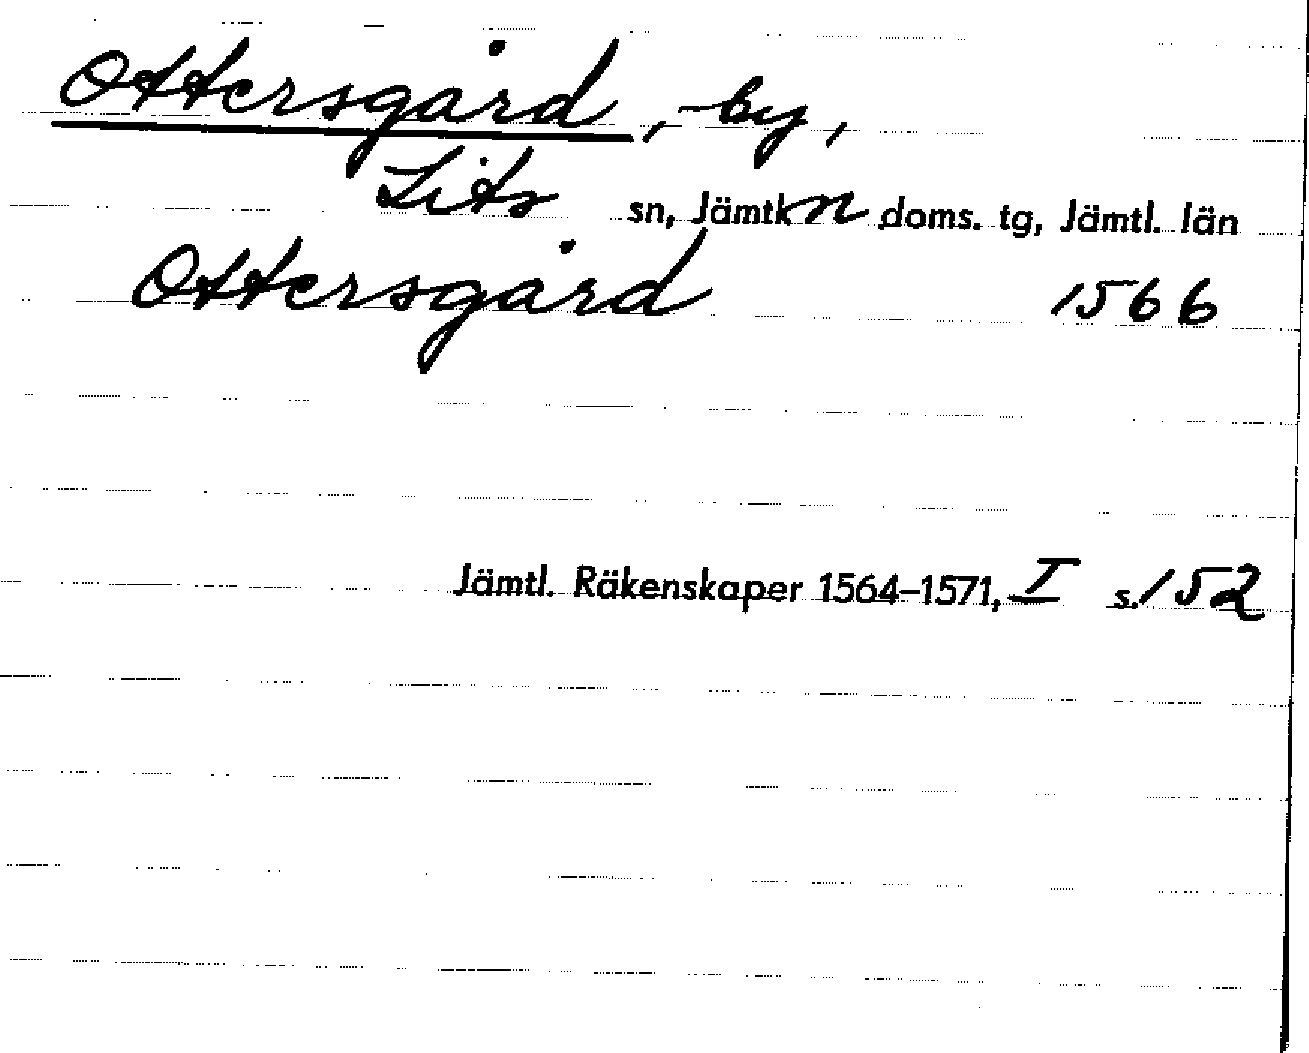 Ottersgård, by,
Lits sn, Jämtl. n doms. tg, Jämtl. län
Ottersgård 1566
Jämtl. Räkenskaper 1564–1571, I s. 152